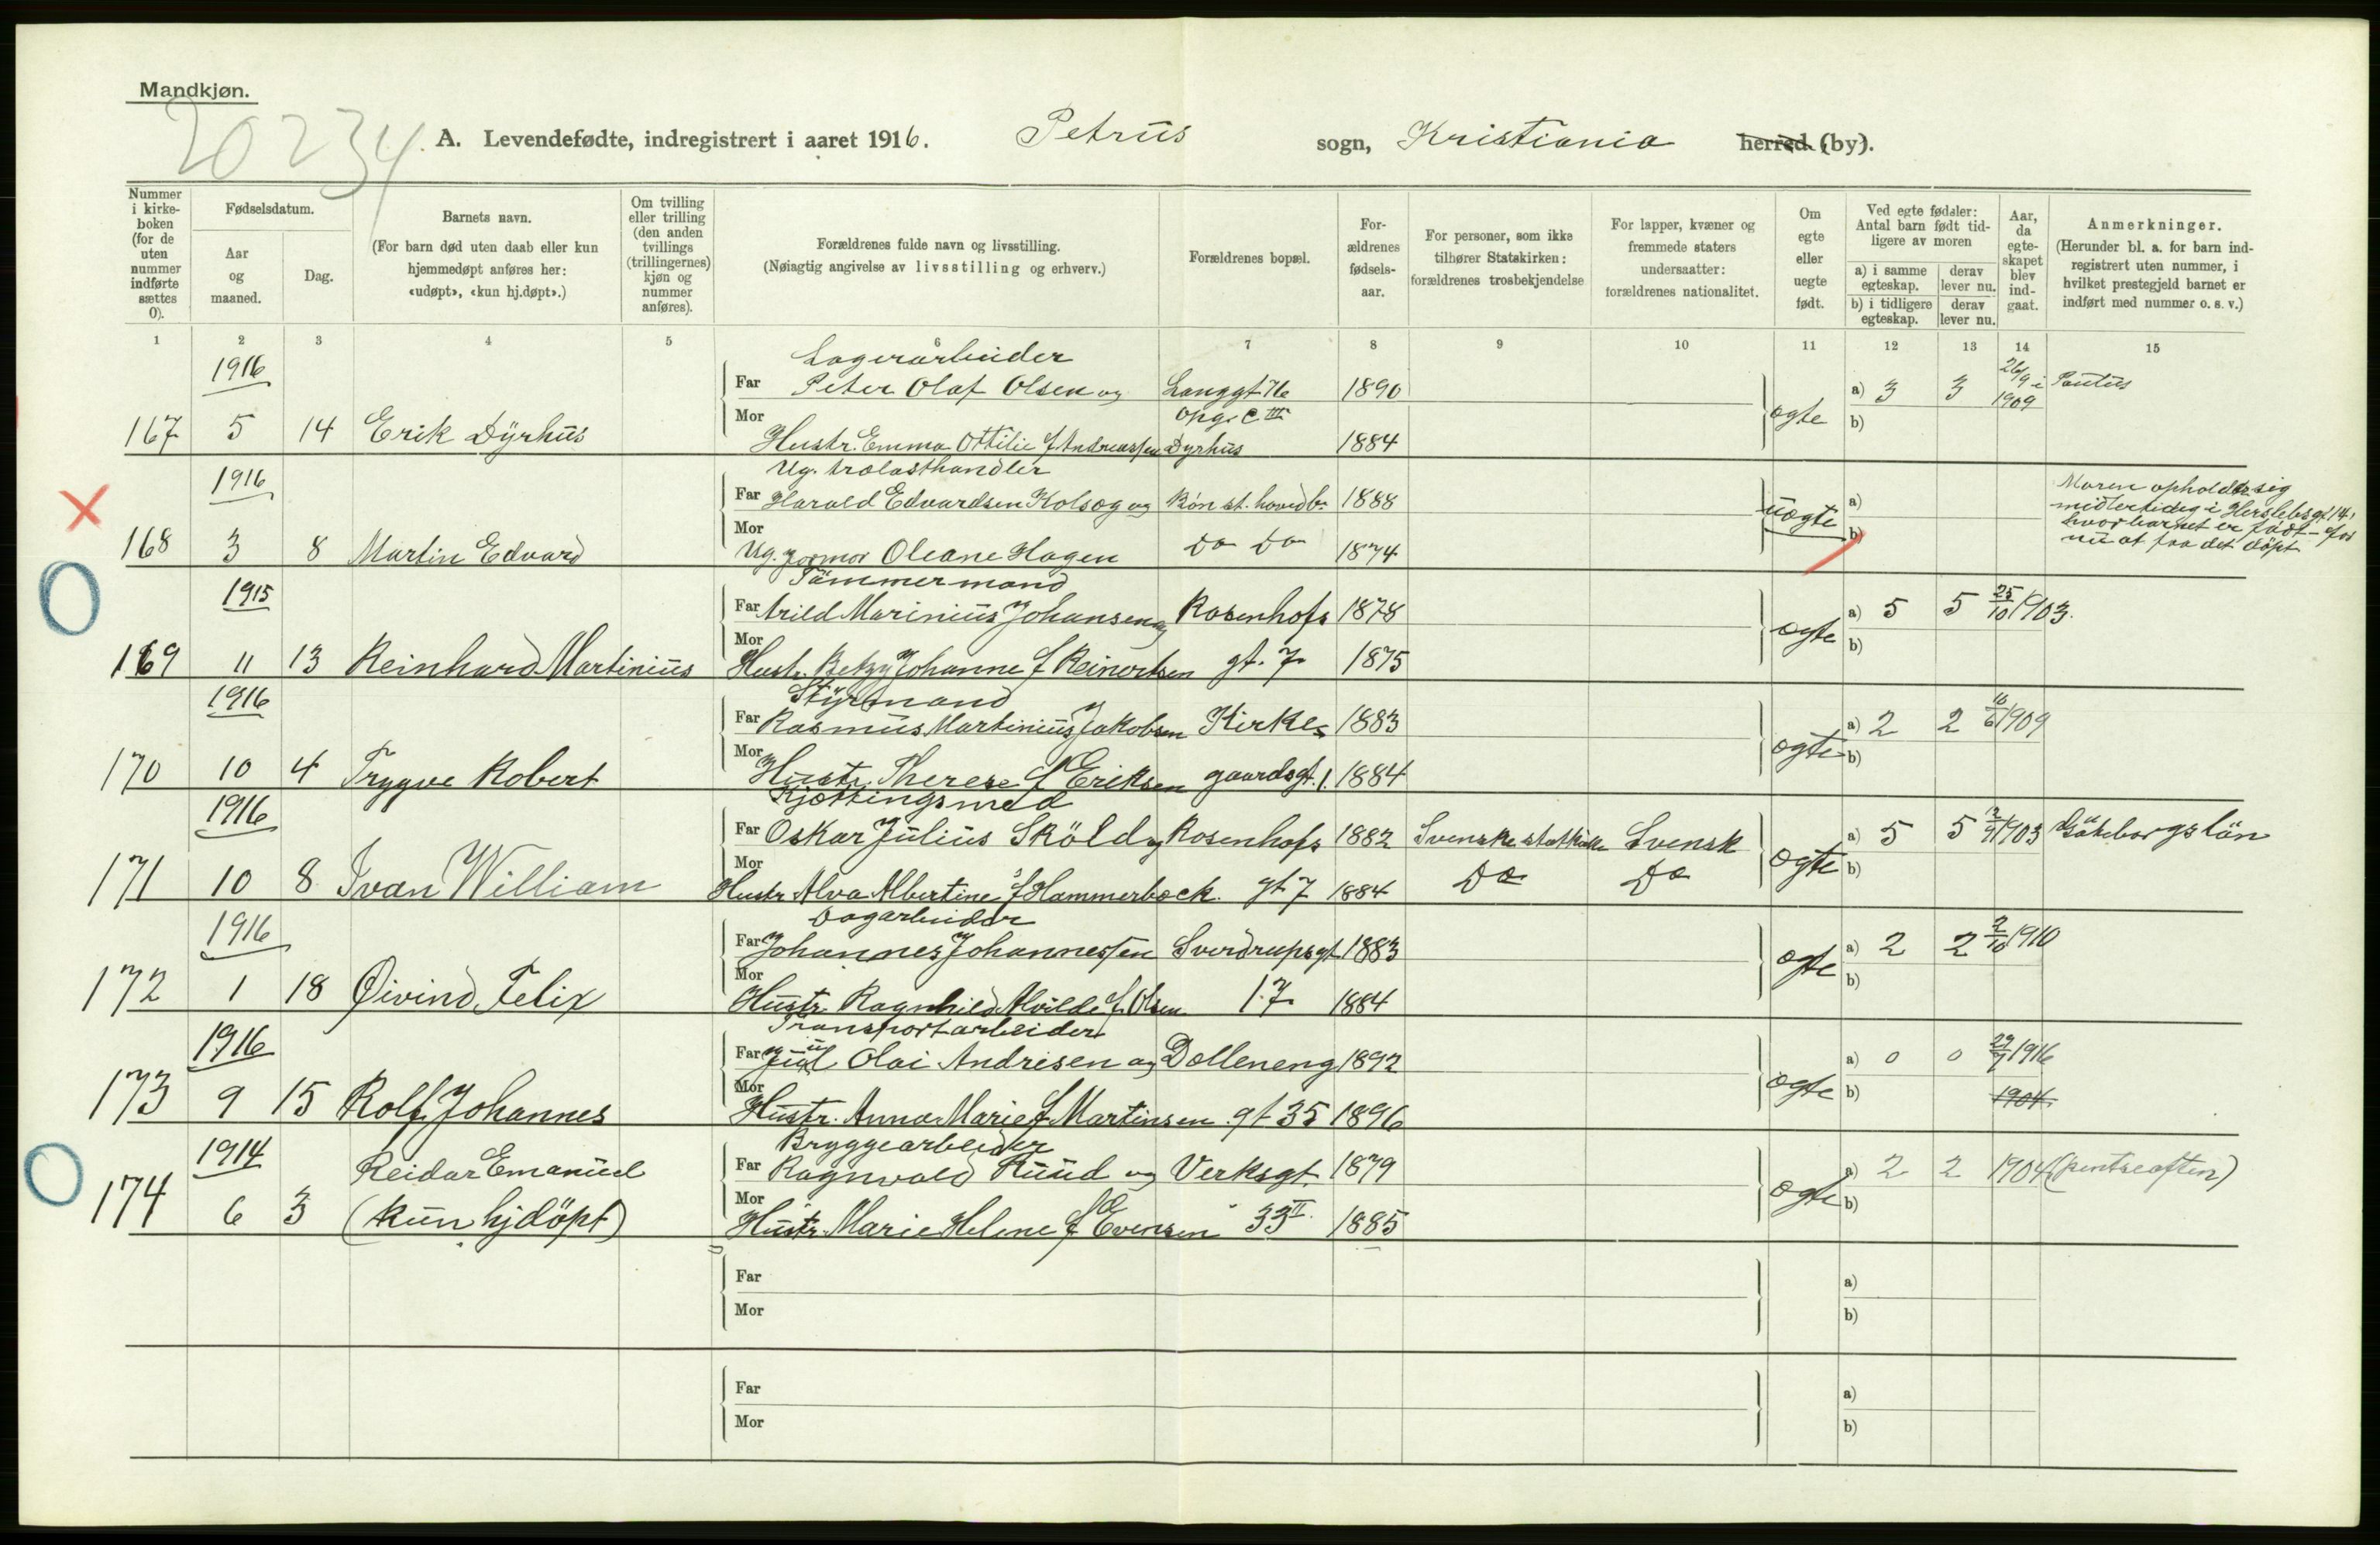 Mandkjøn.
20234
A. Levendefødte, indregistrert i aaret 1916. Petrus sogn, Kristiania herred (by).
Nummer i kirke-boken (for de uten nummer indførte sættes 0).
Fødselsdatum.
Aar og maaned.
Dag.
Barnets navn.
(For barn død uten daab eller kun hjemmedøpt anføres her: «udøpt», «kun hj.døpt».)
Om tvilling eller trilling (den anden tvillings (trillingernes) kjøn og nummer anføres).
Forældrenes fulde navn og livsstilling.
(Nøiagtig angivelse av livsstilling og erhverv.)
Forældrenes bopæl.
For-ældrenes fødsels-aar.
For personer, som ikke tilhører Statskirken: forældrenes trosbekjendelse
For lapper, kvæner og fremmede staters undersaatter: forældrenes nationalitet.
Om egte eller uegte født.
Ved egte fødsler: Antal barn født tid-ligere av moren
a) i samme egteskap.
derav lever nu.
b) i tidligere egteskap.
derav lever nu.
Aar, da egte-skapet blev ind-gaat.
Anmerkninger.
(Herunder bl. a. for barn ind-registrert uten nummer, i hvilket prestegjeld barnet er indført med nummer o. s. v.)
1 2 3 4 5 6 7 8 9 10 11 12 13 14 15
1916 Lagerarbeider 26/9 i
Far Peter Olaf Olsen og Langgt 76 1890 a) 3 3 1909 Paulus
167 5 14 Erik Dyrhus Mor opg. C III ægte b)
Hustr. Emma Ottilie f. Andreassen Dyrhus 1884
1916 Ug. trælasthandler
Far Harald Edvardsen Kolsøg og st. 1888 a) Moren opholder sig
midlertidig i Herslebsgt 14,
168 3 8 Martin Edvard Mor uægte b) hvor barnet er født
Ug. Oleane Hagen Do Do 1874 nu at faa det døpt
1915 Tømmermand
Far Arild Marinius Johansen og Rosenhofs 1878 a) 5 5 25/10 1903.
169 11 13 Reinhard Martinius Mor Hustr. Betzy Johanne f Reinertsen gt. 7 1875 ægte b)
1916 Styrmand
Far Rasmus Martinius Jakobsen Kirke- 1883 a) 2 2 1909
170 10 4 Trygve Robert Mor Hustr. Therese f Eriksen gaardsgt. 1. 1884 ægte b)
1916 Kjættingsmed
Far Oskar Julius Sköld og Rosenhofs 1882 Svenske statskirke Svensk a) 5 5 1903 Göteborgs län
171 10 8 Ivan William Mor Hustr Alva Albertine f Hammerbäck. gt 7 1884 Do Do ægte b)
1916 Dagarbeider
Far Johannes Johannessen Sverdrupsgt 1883 a) 2 2 2/10 1910
172 1 18 Øivind Felix Mor Hustr. Ragnhild Alvilde f. Olsen 17 1884 ægte b)
1916 Transportarbeider
Far Juul Olai Andrisen og Dælleneng 1892 a) 0 0 1916
173 9 15 Rolf Johannes Mor Hustr. Anna Marie f Martinsen gt 35 1896 ægte b) 1904.
1914 Bryggearbeider
Reidar Emanuel Far Ragnvald Ruud og Verksgt. 1879 a) 2 2 1904 (pintseaften)
174 6 3 (kun hjdöpt) Mor Hustr. Marie Helene f Evensen 33 II. 1885 ægte b)
Far a)
Mor b)
Far a)
Mor b)